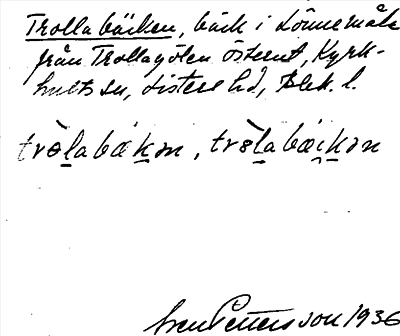 Trollabäcken, bäck i Lönnemåla
från Trollagölen österut, Kyrk-
hults sn, Listers hd, Blek. l.
trɵ̀l̠abäk̠ən, trɵ̀l̠abäi̯k̠ən
Sven Pettersson 1936